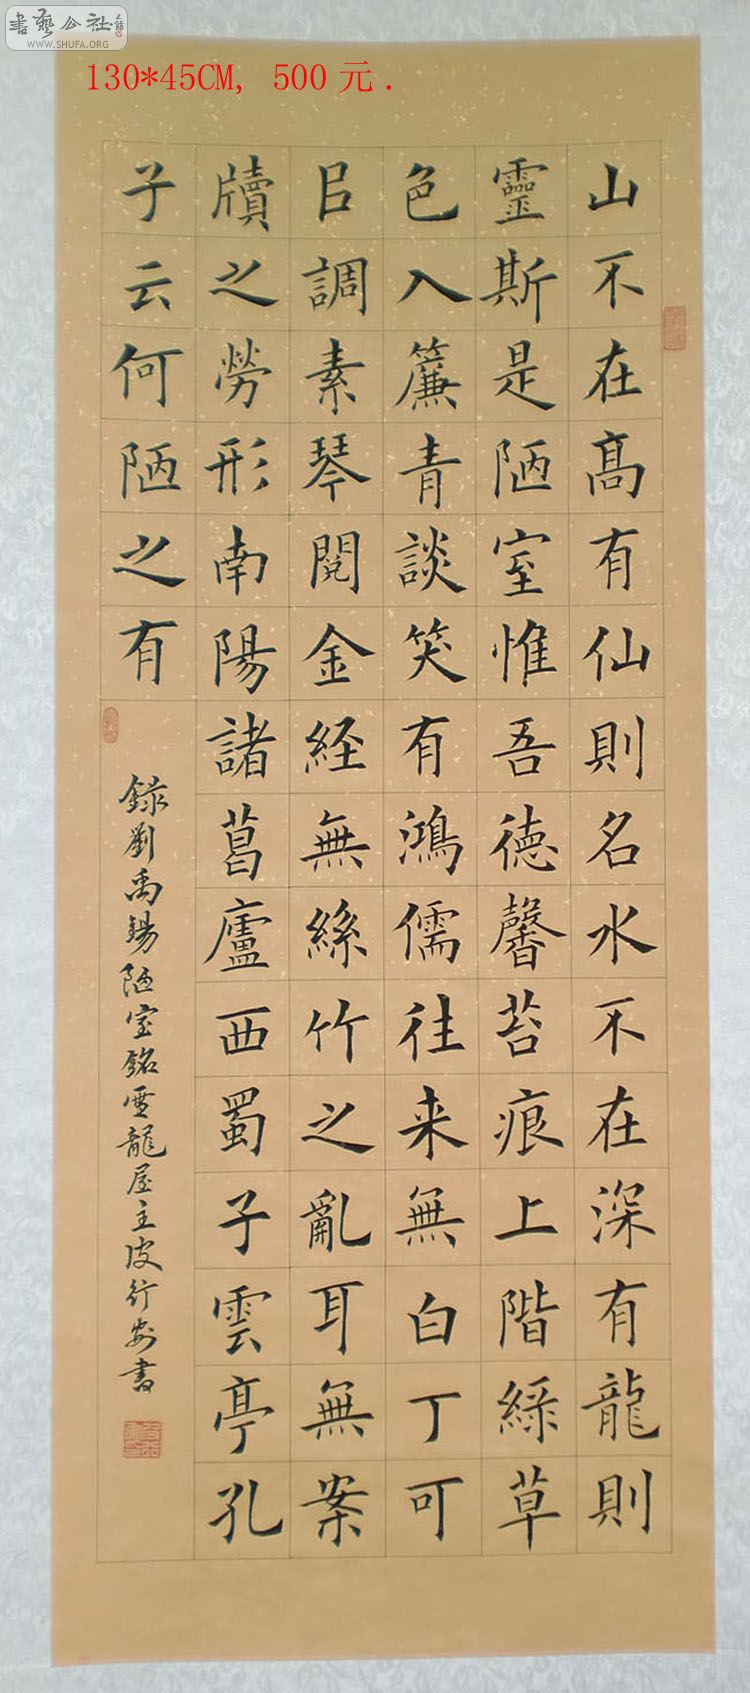 書藝公社
WWW.SHUFA.ORG
130*45CM, 500元.
山不在髙有仙則名水不在深有龍則
靈斯是陋室惟吾德馨苔痕上階綠草
色入簾青談笑有鴻儒往来無白丁可
㠯調素琴閱金経無絲竹之亂耳無案
牘之勞形南陽諸葛廬西蜀子雲亭孔
子云何陋之有
錄劉禹錫陋室銘雲龍屋主皮行書